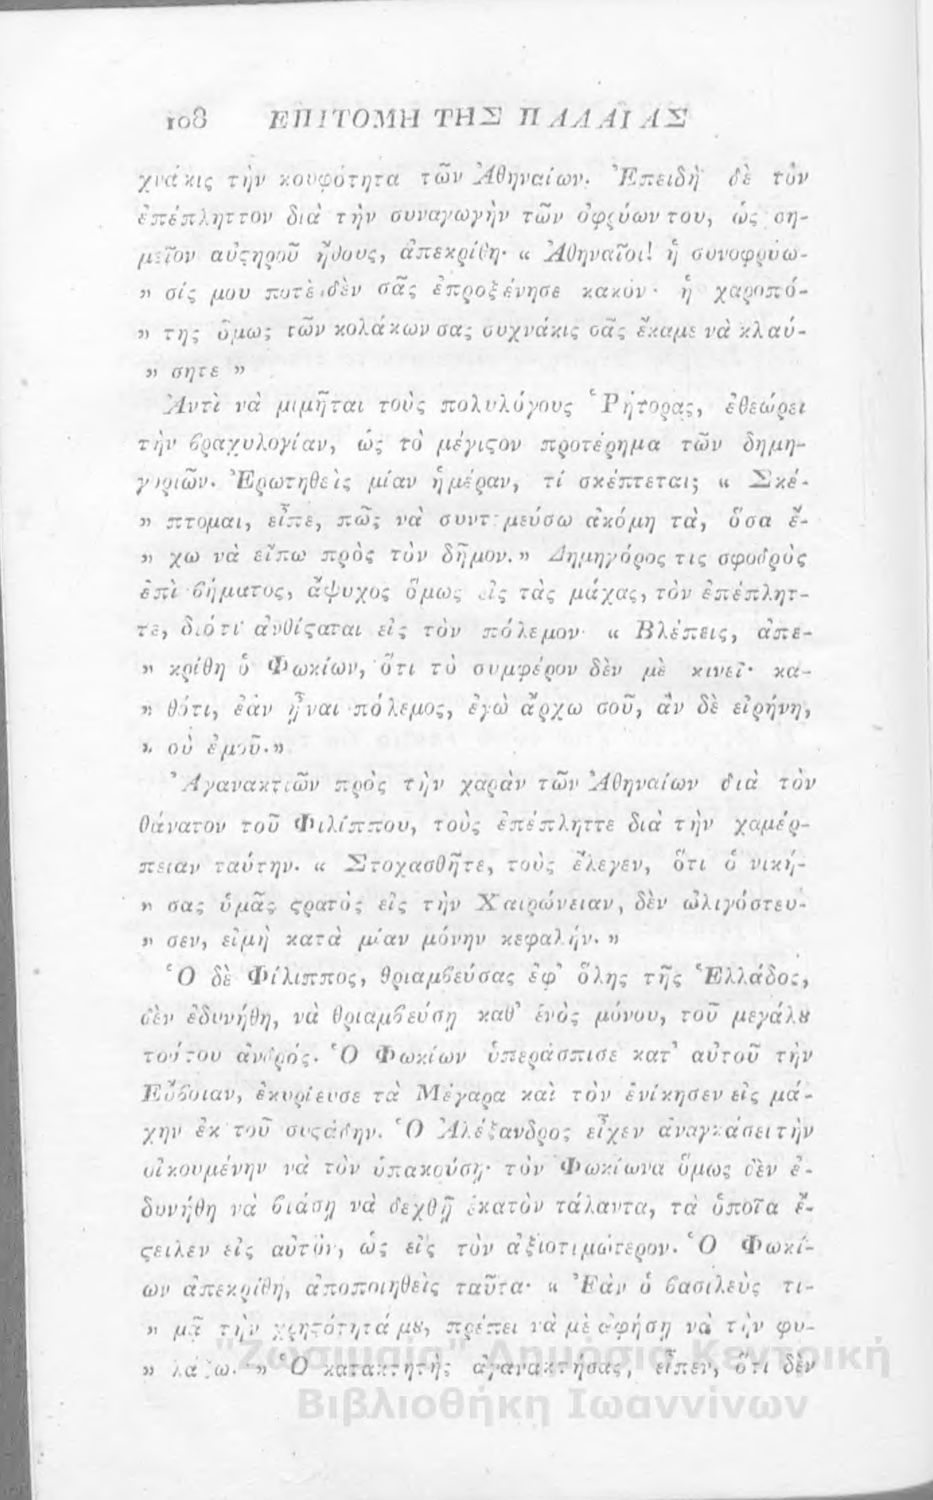 108 ΕΠΙΤΟΜΗ ΤΗΣ ΠΑΛΑΙΑΣ
χνάκις τὴν κουφότητα τῶν Ἀθηναίων. Ἐπειδὴ δὲ τὸν
ἐπέπληττον διὰ τὴν συναγωγὴν τῶν ὀφρύων του, ὡς ση-
μεῖον αὐϛηροῦ ἤθους, ἀπεκρίθη· « Ἀθηναῖοι! ἡ συνοφρύω-
» σίς μου ποτὲ δὲν σᾶς ἐπροξένησε κακὸν· ἡ χαροπό-
» της ὅμως τῶν κολάκων σας συχνάκις σᾶς ἔκαμε νὰ κλαύ-
» σητε »
Ἀντὶ νὰ μιμῆται τοὺς πολυλόγους Ῥήτορας, ἐθεώρει
τὴν βραχυλογίαν, ὡς τὸ μέγιϛον προτέρημα τῶν δημη-
γοριῶν. Ἐρωτηθεὶς μίαν ἡμέραν, τί σκέπτεται; « Σκέ-
» πτομαι, εἶπε, πῶς νὰ συντομεύσω ἀκόμη τὰ, ὅσα ἔ-
» χω νὰ εἴπω πρὸς τὸν δῆμον.» Δημηγόρος τις σφοδρὸς
ἐπὶ βήματος, ἄψυχος ὅμως εἰς τὰς μάχας, τὸν ἐπέπλητ-
τε, διότι ἀνθίϛαται εἰς τὸν πόλεμον· « Βλέπεις, ἀπε-
» κρίθη ὁ Φωκίων, ὅτι τὸ συμφέρον δὲν μὲ κινεῖ· κα-
» θότι, ἐὰν ἦναι πόλεμος, ἐγὼ ἄρχω σοῦ, ἂν δὲ εἰρήνη,
» σὺ ἐμοῦ.»
Ἀγανακτῶν πρὸς τὴν χαρὰν τῶν Ἀθηναίων διὰ τὸν
θάνατον τοῦ Φιλίππου, τοὺς ἐπέπληττε διὰ τὴν χαμέρ-
πειαν ταύτην. « Στοχασθῆτε, τοὺς ἔλεγεν, ὅτι ὁ νική-
» σας ὑμᾶς ϛρατὸς εἰς τὴν Χαιρώνειαν, δὲν ὠλιγόστευ-
» σεν, εἰμὴ κατὰ μίαν μόνην κεφαλήν. »
Ὁ δὲ Φίλιππος, θριαμβεύσας ἐφ' ὅλης τῆς Ἑλλάδος,
δὲν ἐδυνήθη, νὰ θριαμβεύσῃ καθ' ἑνὸς μόνου, τοῦ μεγάλȣ
τούτου ἀνδρός. Ὁ Φωκίων ὑπεράσπισε κατ' αὐτοῦ τὴν
Εὔβοιαν, ἐκυρίευσε τὰ Μέγαρα καὶ τὸν ἐνίκησεν εἰς μά-
χην ἐκ τοῦ συϛάδην. Ὁ Ἀλέξανδρος εἶχεν ἀναγκάσει τὴν
οἰκουμένην νὰ τὸν ὑπακούσῃ· τὸν Φωκίωνα ὅμως δὲν ἐ-
δυνήθη νὰ βιάσῃ νὰ δεχθῇ ἑκατὸν τάλαντα, τὰ ὁποῖα ἔ-
ϛειλεν εἰς αὐτὸν, ὡς εἰς τὸν ἀξιοτιμώτερον. Ὁ Φωκί-
ων ἀπεκρίθη, ἀποποιηθεὶς ταῦτα· « Ἐὰν ὁ βασιλεὺς τι-
» μᾷ τὴν χρηϛότητά μȣ, πρέπει νὰ μὲ ἀφήσῃ νὰ τὴν φυ-
» λάξω. » Ὁ κατακτητὴς ἀγανακτήσας, εἶπεν, ὅτι δὲν
"Ζωσιμαία" Δημόσια Κεντρική
Βιβλιοθήκη Ιωαννίνων